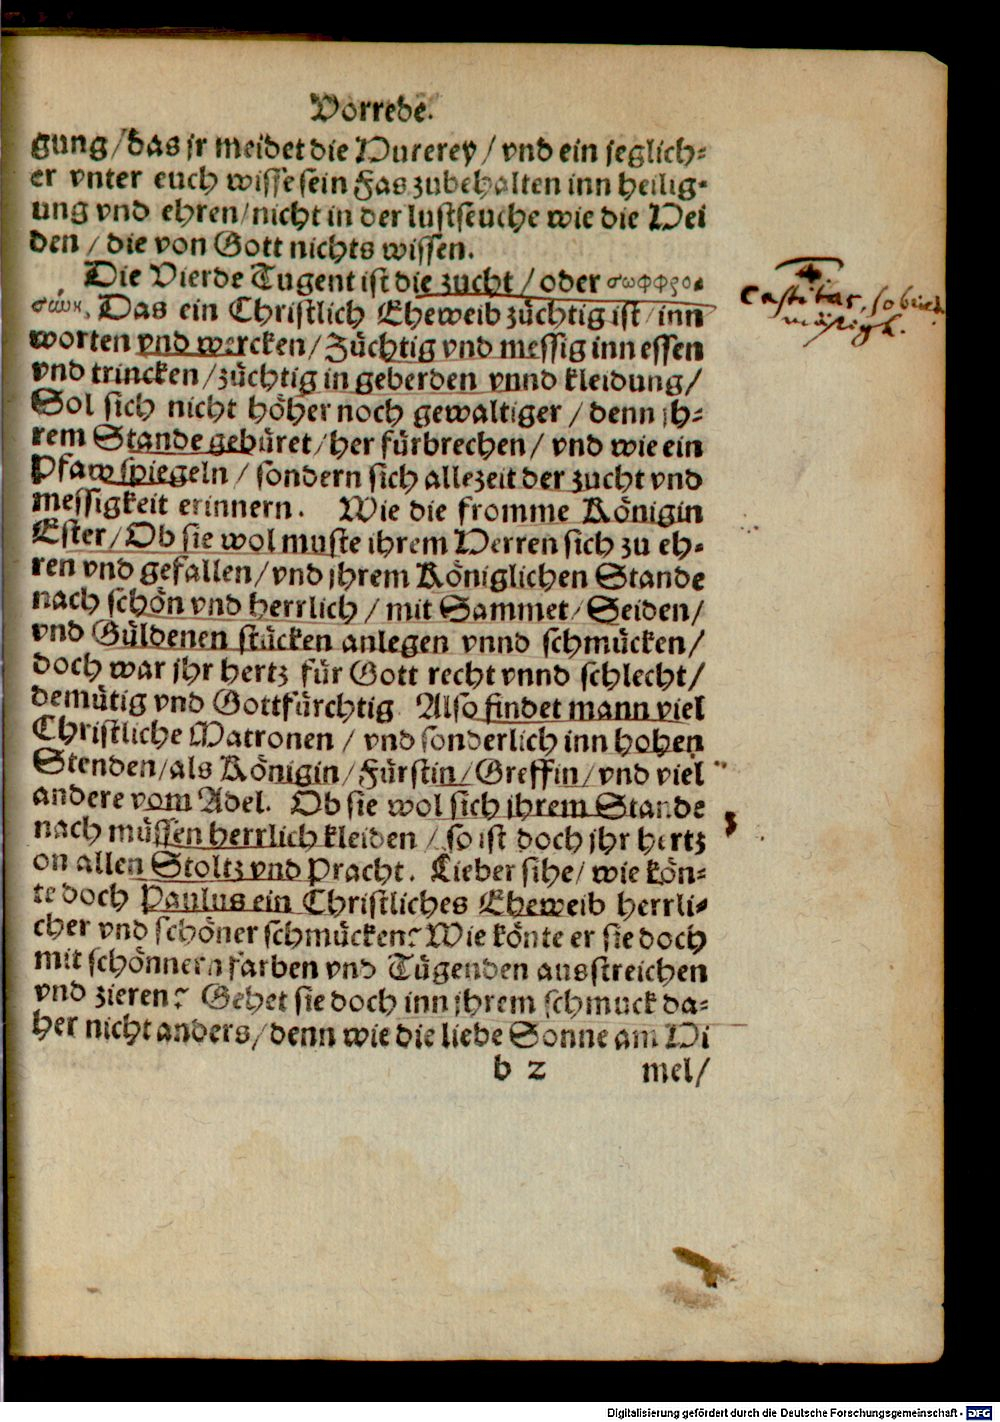 Vorrede.
gung/das jr meidet die Hurerey/vnd ein jeglich=
er vnter euch wisse sein Fas zubehalten inn heilig=
ung vnd ehren/nicht in der lustseuche wie die Hei
den/die von Gott nichts wissen.
Die Vierde Tugent ist die zucht/oder σωφρο=
σύνη. Das ein Christlich Eheweib züchtig ist/inn
worten vnd wercken/Züchtig vnd messig inn essen
vnd trincken/züchtig in geberden vnnd kleidung/
Sol sich nicht höher noch gewaltiger/denn jh=
rem Stande gebüret/her fürbrechen/vnd wie ein
Pfaw spiegeln/sondern sich allezeit der zucht vnd
messigkeit erinnern. Wie die fromme Königin
Ester/Ob sie wol muste ihrem Herren sich zu eh=
ren vnd gefallen/vnd jhrem Königlichen Stande
nach schön vnd herrlich/mit Sammet/Seiden/
vnd Güldenen stücken anlegen vnnd schmücken/
doch war jhr hertz für Gott recht vnnd schlecht/
demütig vnd Gottfürchtig. Also findet mann viel
Christliche Matronen/vnd sonderlich inn hohen
Stenden/als Königin/Fürstin/Greffin/vnd viel
andere vom Adel. Ob sie wol sich ihrem Stande
nach müssen herrlich kleiden/so ist doch jhr hertz
on allen Stoltz vnd Pracht. Lieber sihe/wie kön=
te doch Paulus ein Christliches Eheweib herrli=
cher vnd schöner schmücken? Wie könte er sie doch
mit schönnern farben vnd Tügenden ausstreichen
vnd zieren? Gehet sie doch inn jhrem schmuck da=
her nicht anders/denn wie die liebe Sonne am Hi
b 2 mel/
Castitas,
mäßigk.
Digitalisierung gefördert durch die Deutsche Forschungsgemeinschaft - DFG